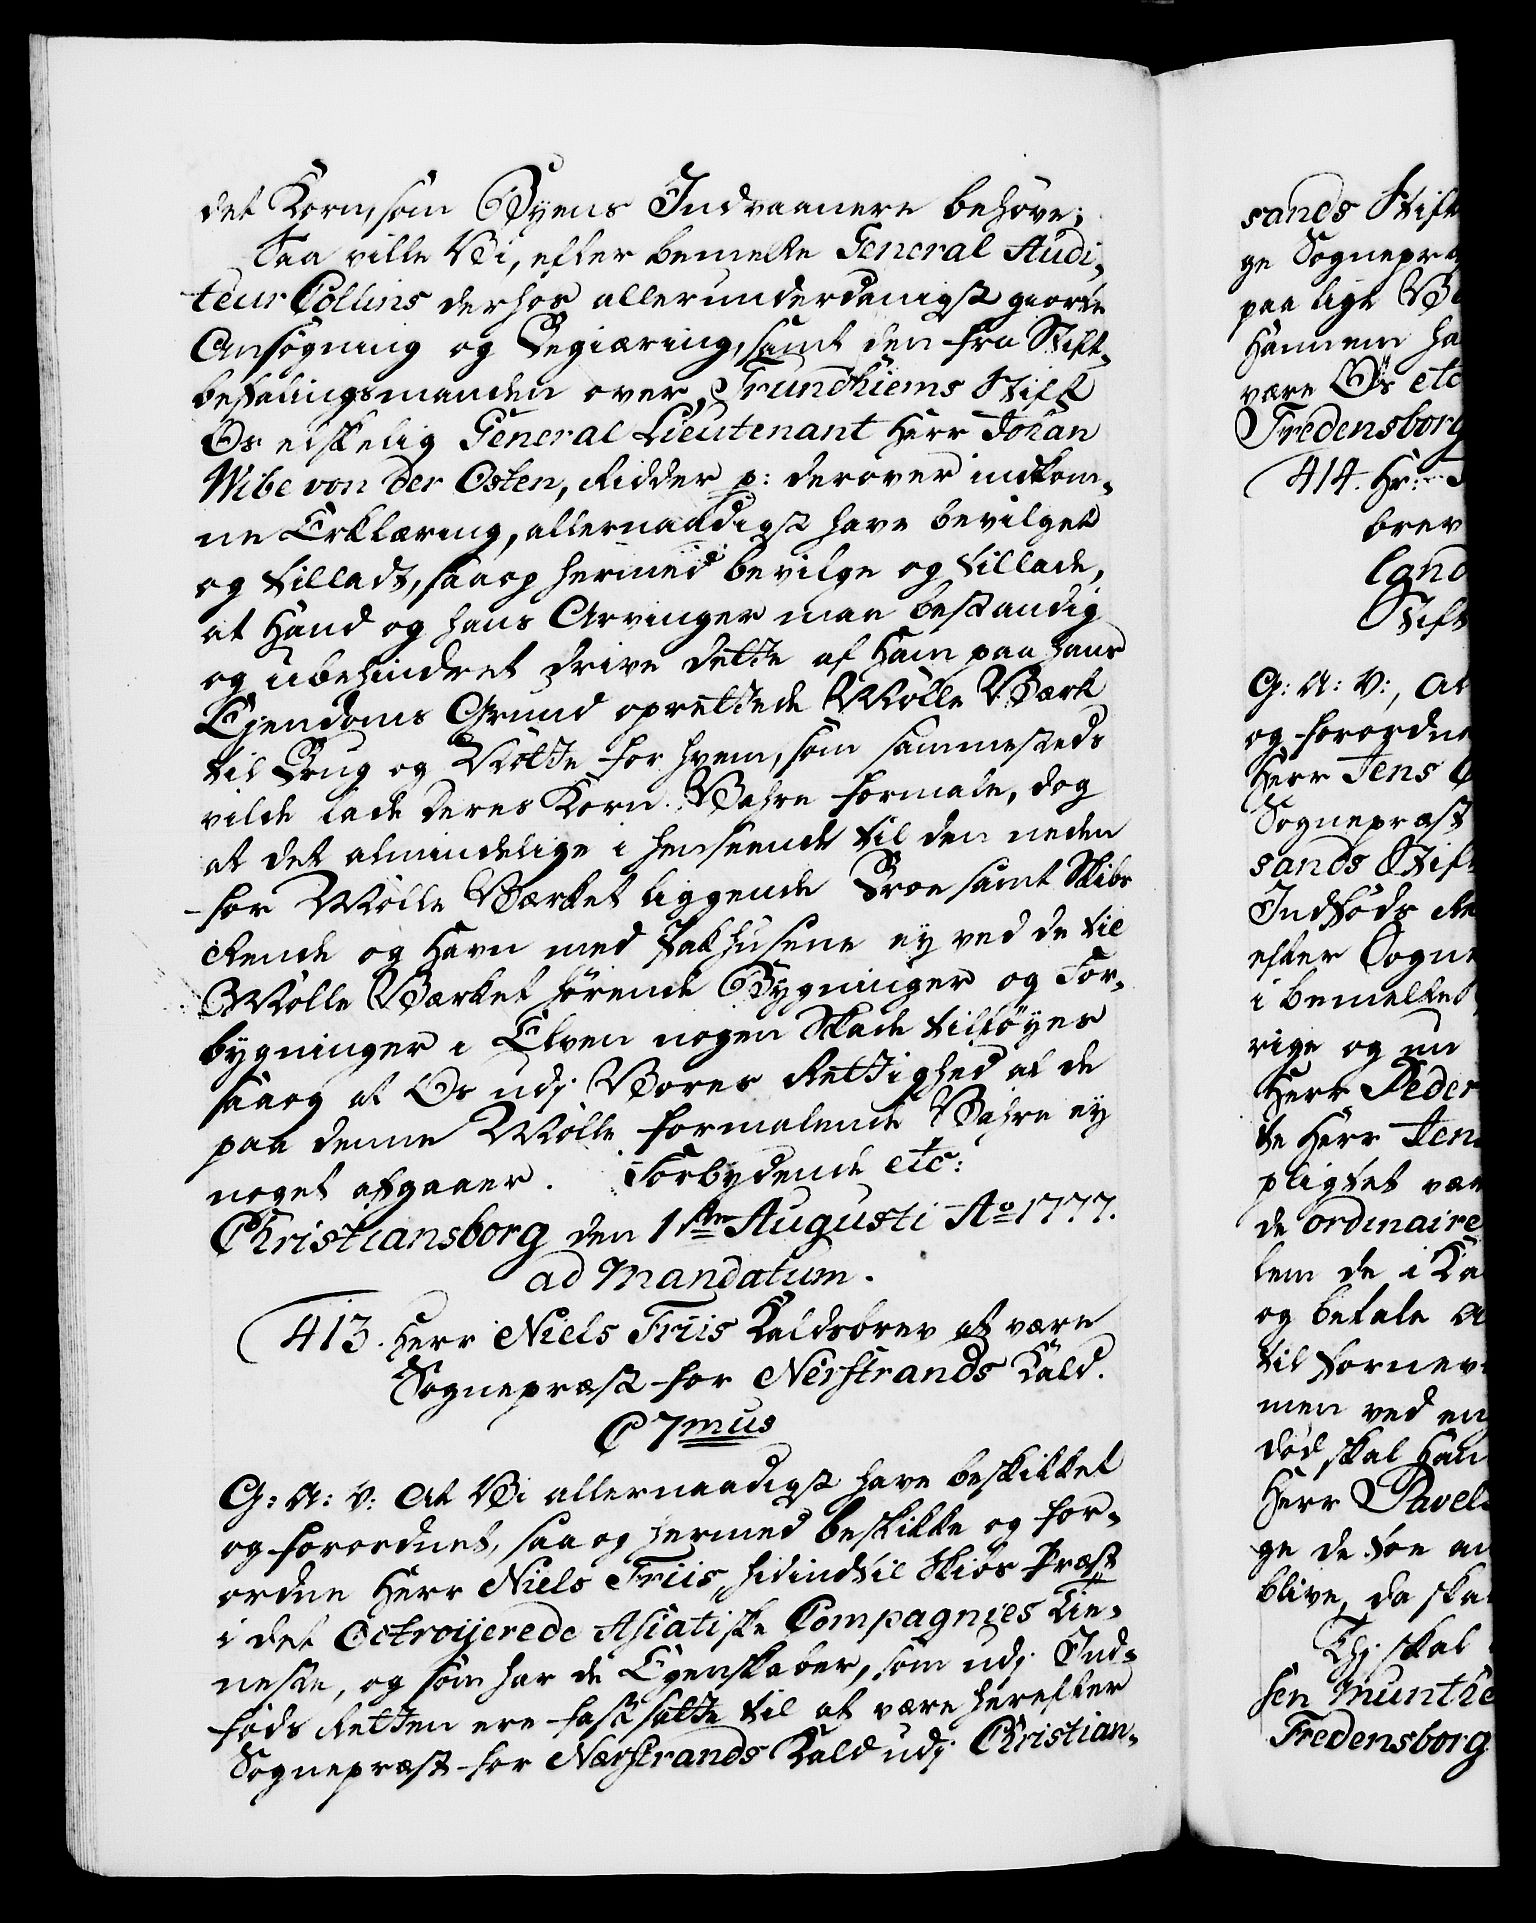 det Korn, som Byens Indvaanere behøve;
Saa ville Vi, efter bemelte General Audi-
teur Collins derhos allerunderdanigst giorte
Ansøgning og Begiæring, samt den fra Stift-
befalingsmanden over Trundhiems Stift
Os elskelig General Lieutenant Herr Johan
Wibe von der Osten, Ridder p: derover indkom-
ne Erklæring, allernaadigst have bevilget
og tilladt, saa og hermed bevilge og tillade,
at Hand og hans Arvinger maa bestandig
og ubehindret drive dette af Ham paa hans
Ejendoms Grund oprettede Mølle Værk
til Brug og Nøtte for hvem, som sammesteds
vilde lade deres Korn-Vahre formale, dog
at det almindelige i henseende til den neden
for Mølle Værket liggende Broe samt Skibs
Rende og Havn med Pakhusene ey ved de til
Mølle Værket hørende Bygninger og For-
bygninger i Elven nogen Skade tilføyes
saa og at Os udj Vores Rettighed af de
paa denne Mølle formalende Vahre ey
noget afgaaer. Forbydende etc:
Christiansborg den 1ste Augusti Ao 1777.
ad Mandatum.
413. Herr Niels Friis Kaldsbrev at være
Sognepræst for Nerstrands Kald.
C 7mus
G: A: V: At Vi allernaadigst have beskikket
og forordnet, saa og hermed beskikke og for-
ordne Herr Niels Friis, hidindtil Skibs Præst
i det Octroijerede Asiatiske Compagnies Tie-
neste, og som har de Egenskaber, som udj Ind-
føds Retten ere fastsatte til at være herefter
Sognepræst for Nerstrands Kald udj Christian-
sands Stift
ge Sognepr
paa lige
Hannem ha
være Os etc
Fredensborg
414. Hr:
brev
land
Stift
G: A: V:, At
og forordne
Herr Jens
Sognepræst
sands Stift
Indføds Re
efter Sogne
i bemeltet
rige og nu
Herr Peder
te Herr Jens
pligtet vær
de ordinaire
lem de i Ka
og betale
til fornev
men ved en
død, skal Han
Herr Pavel
ge de
blive, da skal
Thj skal
sen Munthe
Fredensborg